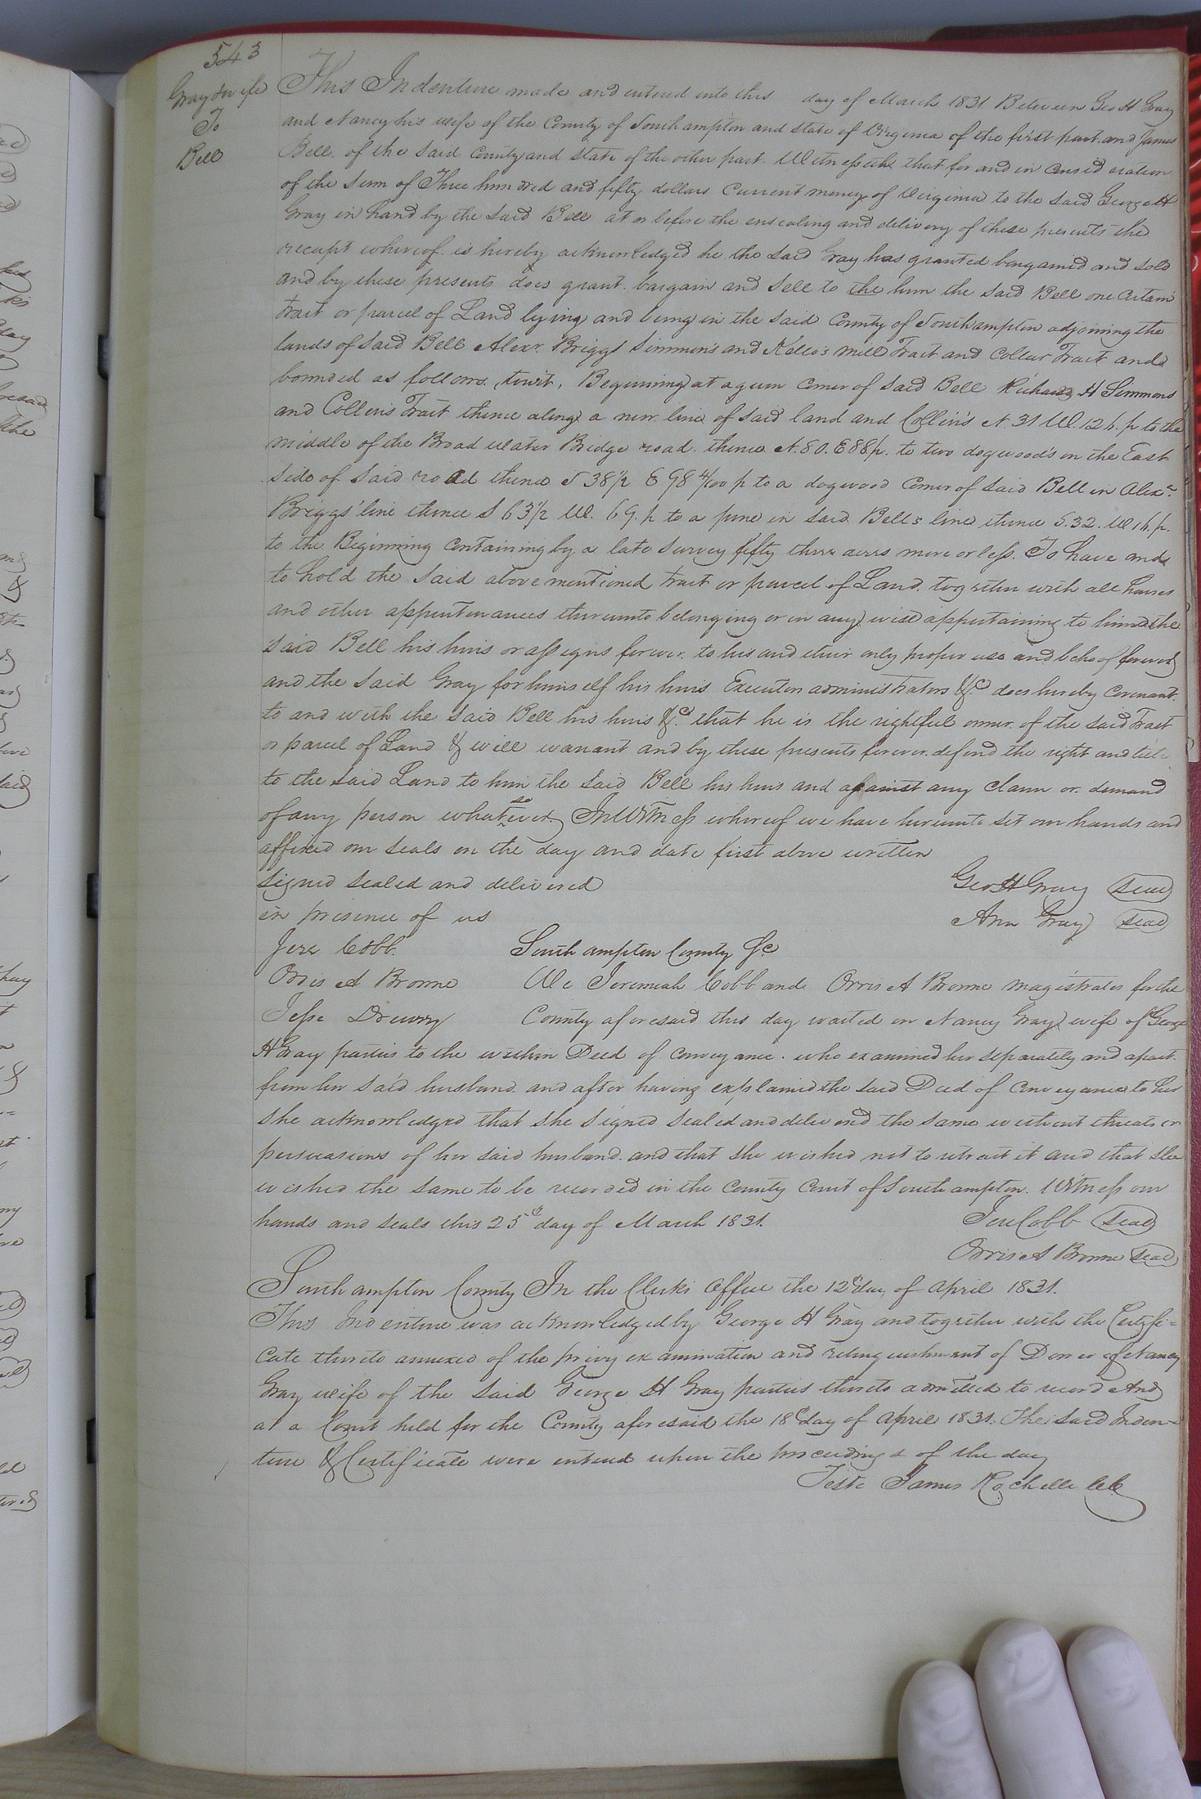 543
Gray & wife
To
Bell
This Indenture made and entered into this day of March 1831 Between Geo H Gray
and Nancy his wife of the County of Southampton and State of Virginia of the first part and James
Bell of the said County and State of the other part Witnesseth that for and in consideration
of the Sum of Three hundred and fifty dollars Current money of Virginia to the said George H
Gray in hand by the said Bell at or before the ensealing and delivery of these presents the
receipt whereof is hereby acknowledged he the said Gray has granted bargained and sold
and by these presents does grant bargain and Sell to the him the said Bell one certain
tract or parcel of Land lying and being in the said County of Southampton adjoining the
lands of said Bell Alexr. Briggs Simmons and Kello's mill Tract and Tract and
bounded as follows, towit, Beginning at a gum corner of said Bell Richard H Simmons
and Collin's Tract thence along a new line of said land and Collin's N 31 W 126 p to the
middle of the Broad water Bridge road thence N. 80. E 88 p. to two dogwood's on the East
side of said road thence S 38½ E 98 4/100 p to a dogwood Corner of said Bell in Alexr.
Briggs' line thence S 63½ W. 69. p to a pine in said Bell's line thence S. 32. W 16 p.
to the Beginning Containing by a late survey fifty three acres more or less. To have and
to hold the said above mentioned tract or parcel of Land together with all houses
and other appurtenances thereunto belonging or in any wise appertaining to him the
said Bell his heirs or assigns forever to his and their only proper use and behoof forever
and the said Gray for himself his heirs Executors administrators &c does hereby Covenant
to and with the said Bell his heirs &c that he is the rightful owner of the said Tract
or parcel of Land & will warrant and by these presents forever defend the right and title
to the said Land to him the said Bell his heirs and against any claim or demand
of any person whatsoever In Witness whereof we have hereunto set our hands and
affixed our seals on the day and date first above written
Signed sealed and delivered Geo H Gray Seal
in presence of us Ann Gray Seal
Jere Cobb. Southampton County Sc
Orris A Browne We Jeremiah Cobb and Orris A Browne magistrates for the
Jesse Drewry County aforesaid this day waited on Nancy Gray wife of George
H Gray parties to the within Deed of conveyance who examined her separately and apart
from her said husband and after having explained the said Deed of Conveyance to her
she acknowledged that she signed sealed and delivered the same without threats or
persuasions of her said husband and that she wished not to retract it and that she
wished the same to be recorded in the County Court of Southampton. Witness our
hands and seals this 25th day of March 1831. Jere Cobb Seal
Orris A Browne Seal
Southampton County In the Clerks Office the 12th day of April 1831.
This Indenture was acknowledged by George H Gray and together with the Certifi=
cate thereto annexed of the privy examination and relinquishment of Dower of Nancy
Gray wife of the said George H Gray parties thereto admitted to record And
at a Court held for the County aforesaid the 18th day of April 1831. The said Inden=
ture & Certificate were entered upon the proceedings of the day
Teste James Rochelle Clk